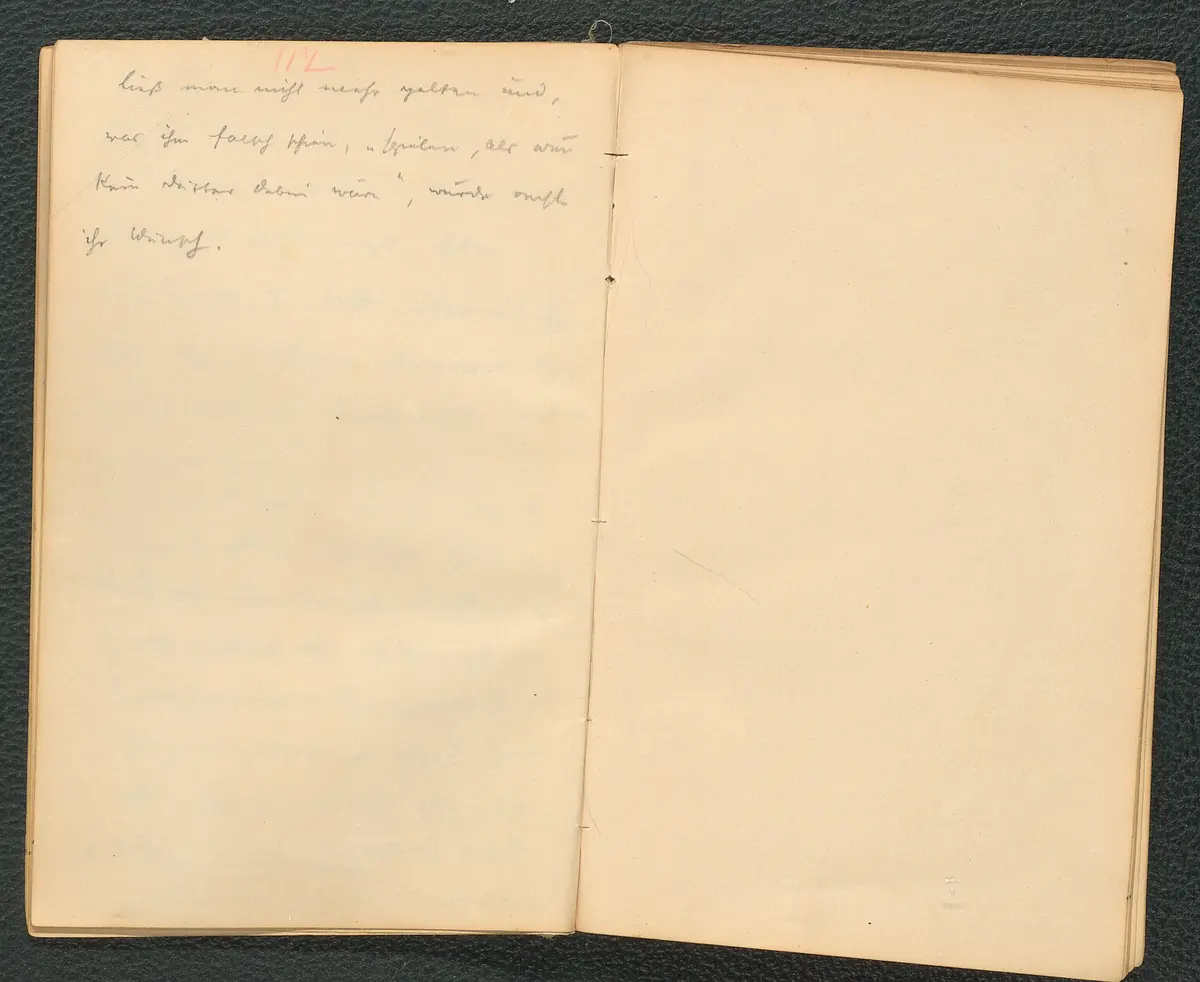 112
ließ man nicht mehr gelten und,
was ihm falsch schien, „spielen, als wenn
kein Dritter dabei wäre“, wurde
ihr Wunsch.